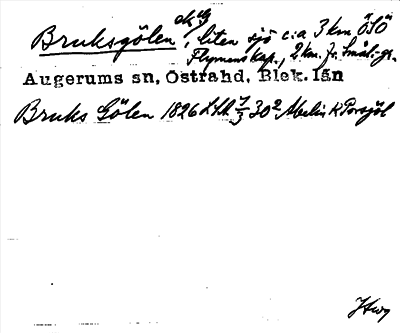 Bruksgölen, liten sjö c:a 3 km ÖSÖ
Flymens kap., 2 km fr. Smål. gr.
Augerums sn, Östrahd, Blek. län
Bruks Gölen 1826 LSA 7/3 30² Abelin K Porsjöl